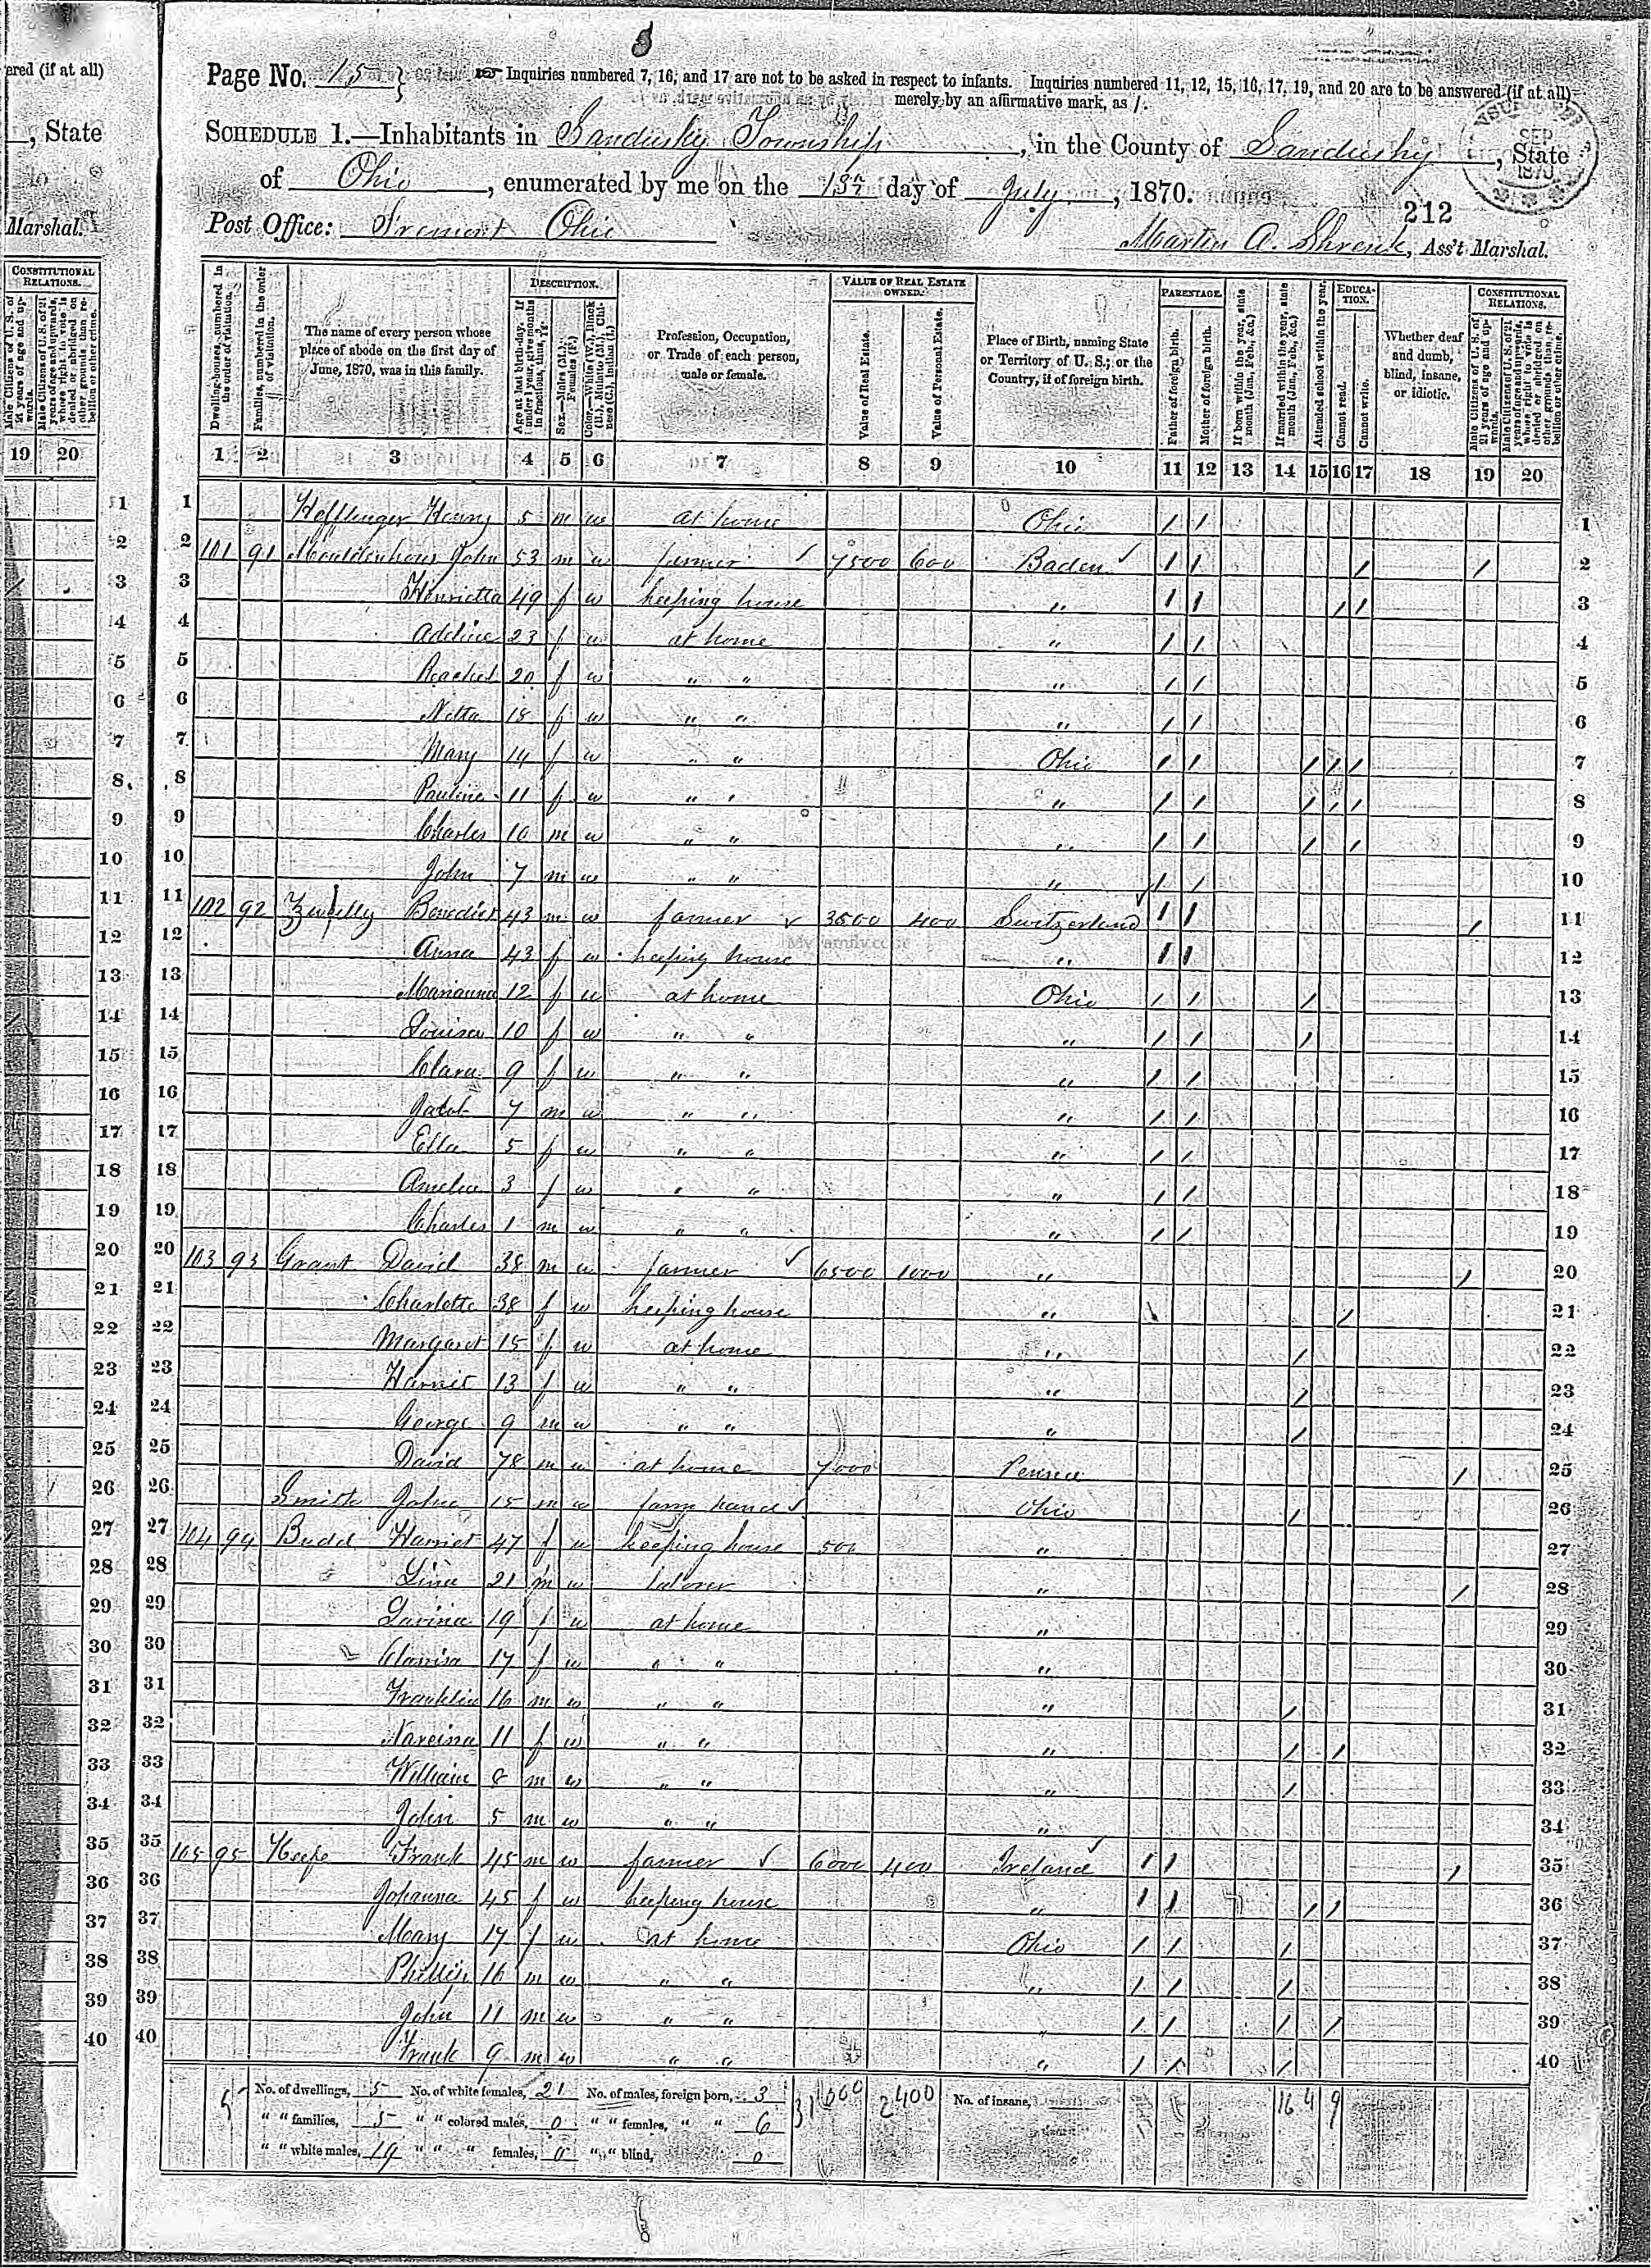 ered (if at all)
, State
Marshal.
CONSTITUTIONAL RELATIONS.
Male Citizens of U. S. of 21 years of age and upwards.
Male Citizens of U. S. of 21 years of age and upwards, whose right to vote is denied or abridged on other grounds than rebellion or other crime.
19 20
Page No. 15 } Inquiries numbered 7, 16, and 17 are not to be asked in respect to infants. Inquiries numbered 11, 12, 15, 16, 17, 19, and 20 are to be answered (if at all)
merely by an affirmative mark, as /.
SCHEDULE 1.—Inhabitants in Sandusky Township, in the County of Sandusky, State
of Ohio, enumerated by me on the 13th day of July, 1870.
SEP
1870
212
Post Office: Fremont Ohio
Martin A. Shrenk, Ass't Marshal.
Dwelling-houses, numbered in the order of visitation.
Families, numbered in the order of visitation.
The name of every person whose place of abode on the first day of June, 1870, was in this family.
DESCRIPTION.
Age at last birth-day. If under 1 year, give months in fractions, thus, 3/12.
Sex.—Males (M.), Females (F.)
Color.—White (W.), Black (B.), Mulatto (M.), Chinese (C.), Indian (I.)
Profession, Occupation, or Trade of each person, male or female.
VALUE OF REAL ESTATE OWNED.
Value of Real Estate.
Value of Personal Estate.
Place of Birth, naming State or Territory of U. S.; or the Country, if of foreign birth.
PARENTAGE.
Father of foreign birth.
Mother of foreign birth.
If born within the year, state month (Jan., Feb., &c.)
If married within the year, state month (Jan., Feb., &c.)
Attended school within the year.
EDUCATION.
Cannot read.
Cannot write.
Whether deaf and dumb, blind, insane, or idiotic.
CONSTITUTIONAL RELATIONS.
Male Citizens of U. S. of 21 years of age and upwards.
Male Citizens of U. S. of 21 years of age and upwards, whose right to vote is denied or abridged on other grounds than rebellion or other crime.
1 2 3 4 5 6 7 8 9 10 11 12 13 14 15 16 17 18 19 20
1 Hefflinger Henry 5 m w at home Ohio / / 1
2 101 91 Mouldenhour John 53 m w farmer ✓ 7500 600 Baden ✓ / / / / 2
3 Henrietta 49 f w keeping house " / / / / 3
4 Adeline 23 f w at home " / / 4
5 Rachel 20 f w " " " / / 5
6 Netta 18 f w " " " / / 6
7 Mary 14 f w " " Ohio / / / / / 7
8 Pauline 11 f w " " " / / / / / 8
9 Charles 10 m w " " " / / / / 9
10 John 7 m w " " " / / 10
11 102 92 Zweilly Benedict 43 m w farmer ✓ 3500 400 Switzerland ✓ / / / 11
12 Anna 43 f w keeping house " / / 12
13 Marianna 12 f w at home Ohio / / / 13
14 Louisa 10 f w " " " / / / 14
15 Clara 9 f w " " " / / 15
16 Jacob 7 m w " " " / / 16
17 Ella 5 f w " " " / / 17
18 Amelia 3 f w " " " / / 18
19 Charles 1 m w " " " / / 19
20 103 93 Grant David 38 m w farmer ✓ 6500 1000 " / 20
21 Charlotte 38 f w keeping house " \ / 21
22 Margaret 15 f w at home " / 22
23 Harriet 13 f w " " " / 23
24 George 9 m w " " " / 24
25 David 78 m w at home 7000 Penna / 25
26 Smith John 15 m w farm hand ✓ Ohio / 26
27 104 94 Budd Harriet 47 f w keeping house 500 " 27
28 21 m w laborer " / 28
29 Lavina 19 f w at home " 29
30 Clarisa 17 f w " " " 30
31 Franklin 16 m w " " " / 31
32 11 f w " " " / / 32
33 William 8 m w " " " / 33
34 John 5 m w " " " 34
35 105 95 Keefe Frank 45 m w farmer ✓ 6000 400 Ireland ✓ / / / 35
36 Johanna 45 f w keeping house " / / / / 36
37 Mary 17 f w at home Ohio / / / 37
38 Phillip 16 m w " " " / / / 38
39 John 11 m w " " " / / / / 39
40 Frank 9 m w " " " / / / 40
5 No. of dwellings, 5 No. of white females, 21 No. of males, foreign born, 3 31000 2400 No. of insane, 16 4 9
" " families, 5 " " colored males, 0 " " females, " " 6
" " white males, 19 " " " females, 0 " " blind, 0